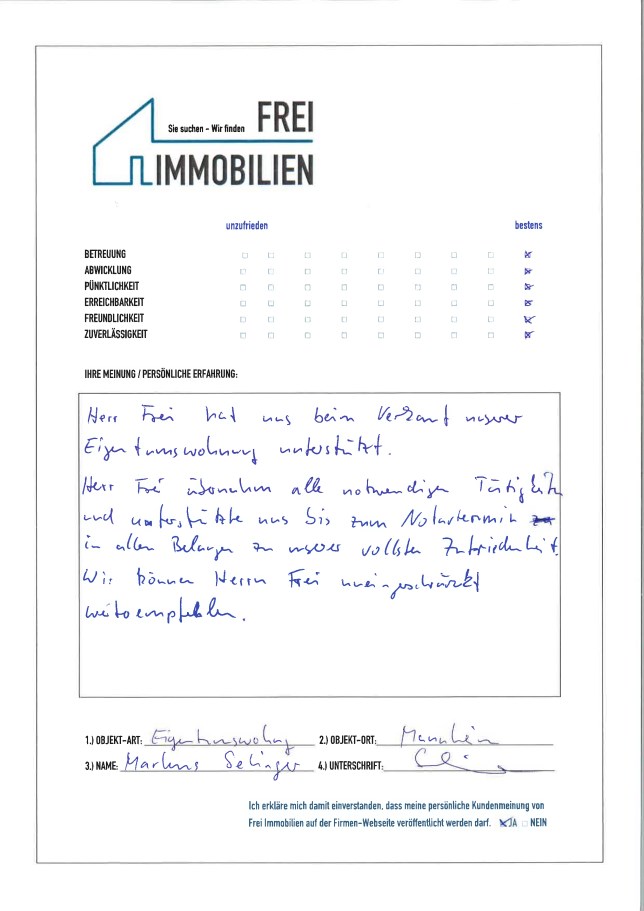 Sie suchen – Wir finden FREI
IMMOBILIEN
unzufrieden bestens
BETREUUNG
ABWICKLUNG
PÜNKTLICHKEIT
ERREICHBARKEIT
FREUNDLICHKEIT
ZUVERLÄSSIGKEIT
IHRE MEINUNG / PERSÖNLICHE ERFAHRUNG:
Herr Frei hat uns beim Verkauf unserer
Eigentumswohnung unterstützt.
Herr Frei übernahm alle notwendigen Tätigkeiten
und unterstützte uns bis zum Notartermin
in allen Belangen zu unserer vollsten Zufriedenheit.
Wir können Herrn Frei uneingeschränkt
weiterempfehlen.
1.) OBJEKT-ART: Eigentumswohnung 2.) OBJEKT-ORT: Mannheim
3.) NAME: Markus 4.) UNTERSCHRIFT:
Ich erkläre mich damit einverstanden, dass meine persönliche Kundenmeinung von
Frei Immobilien auf der Firmen-Webseite veröffentlicht werden darf. JA NEIN